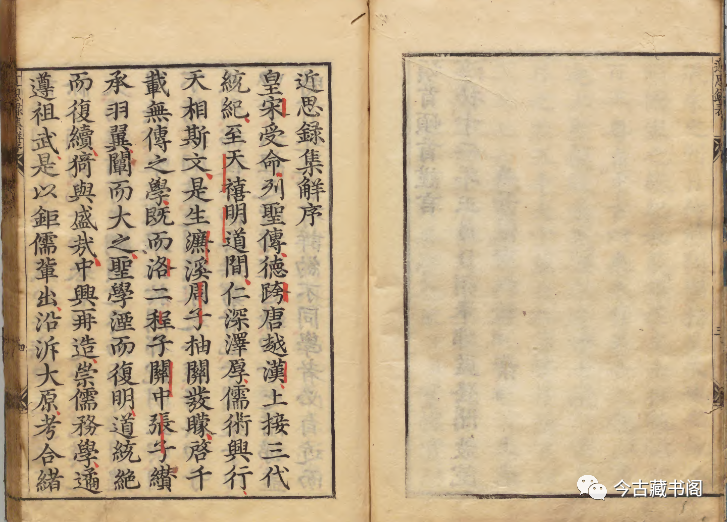 近思録集解序
皇宋受命列聖傳德跨唐越漢上接三代
統紀至天禧明道間仁深澤厚儒術興行
天相斯文是生濂溪周子抽關發矇啓千
載無傳之學既而洛二程子關中張子纘
承羽翼闡而大之聖學湮而復明道統絶
而復續猗與盛哉中興再造崇儒務學遹
遵祖武是以鉅儒輩出沿泝大原考合緒
今古藏书阁